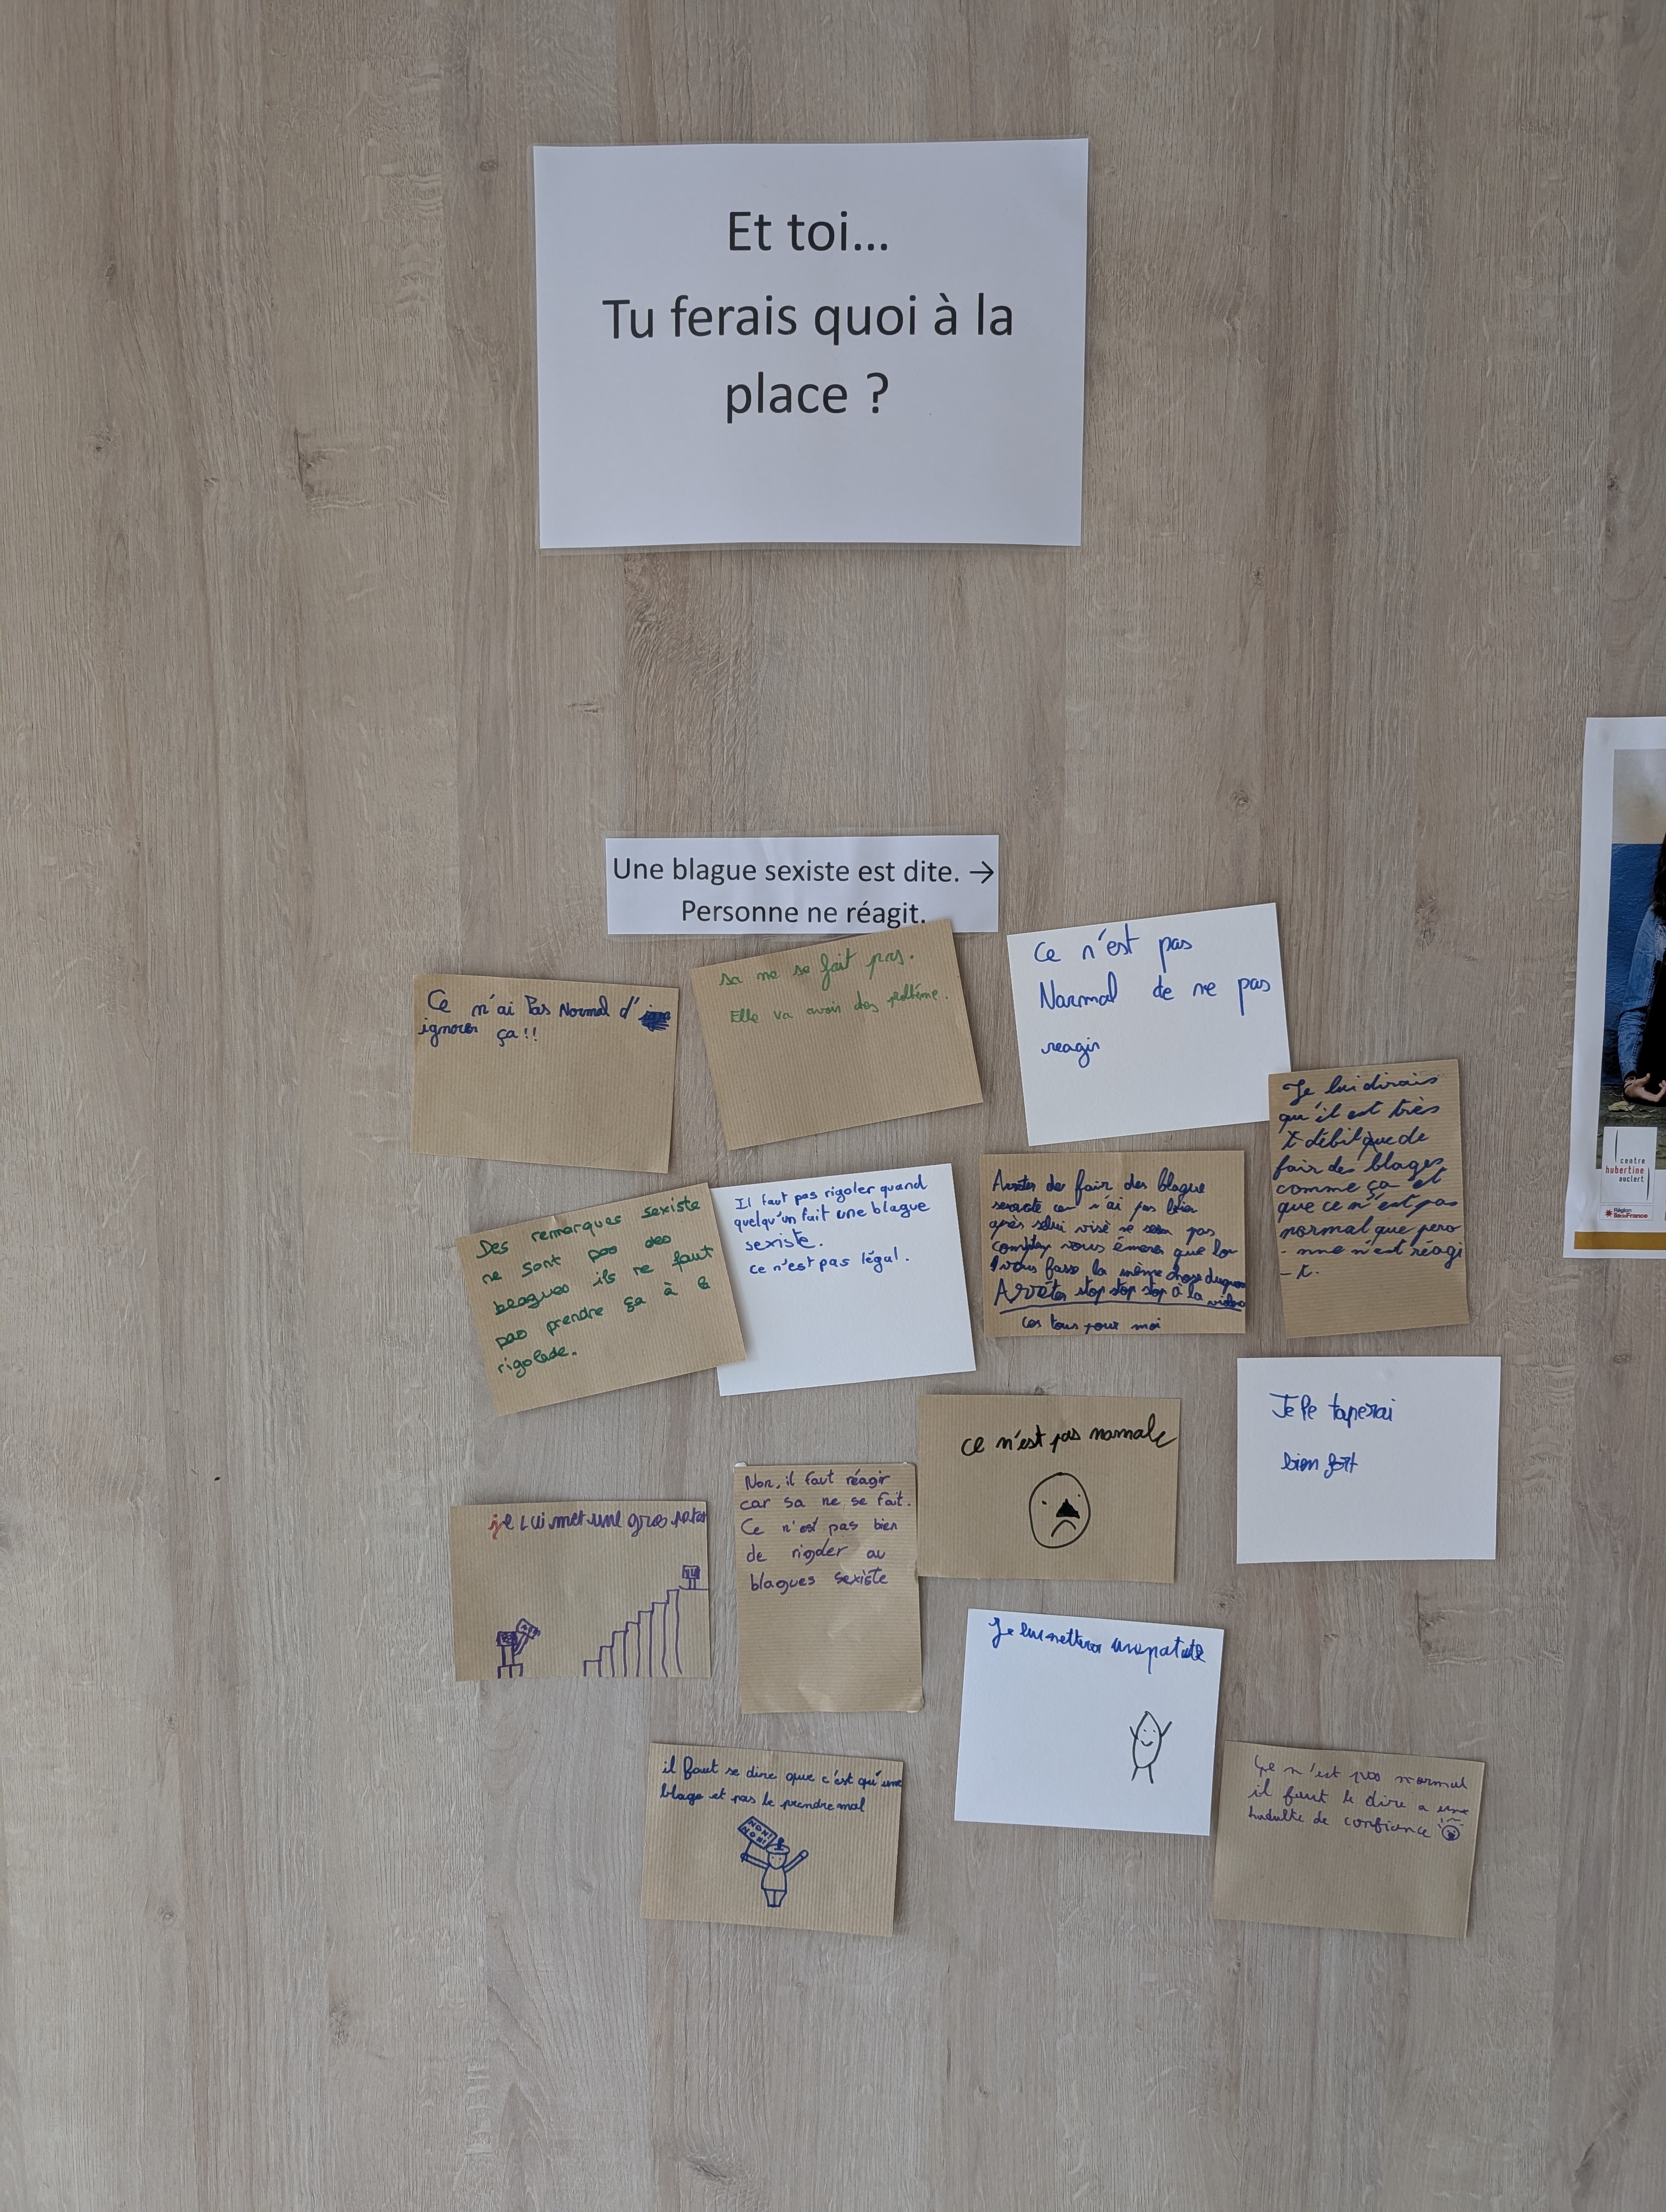 Et toi...
Tu ferais quoi à la
place ?
Une blague sexiste est dite. →
Personne ne réagit.
Ce n'ai Pas Normal d'
ignorer ça !!
sa ne se fait pas.
Elle va avoir des problème.
Ce n'est pas
Normal de ne pas
reagir
Je lui dirais
qu'il est très
débil que de
fair des blages
comme ça et
que ce n'est pas
normal que perso
-nne n'est réagi
-t.
Des remarques sexiste
ne sont pas des
blagues ils ne faut
pas prendre ça à la
rigolade.
Il faut pas rigoler quand
quelqu'un fait une blague
sexiste.
ce n'est pas légal.
Arrêter de fair des blague
n'ai pas bien
après selui visé ne pas
vous émeres que lon
vous fasse la même chose
Arrêter stop stop stop à la
ces tous pour moi
ce n'est pas normale
Je le taperai
bien fort
je lui met une gros
Non, il faut réagir
car sa ne se fait.
Ce n'est pas bien
de rigoler au
blagues sexiste
Je lui metterai une patate
il faut se dire que c'est qu'une
blage et pas le prendre mal
NON!
NON!
Ce n'est pas normal
il faut le dire a une
hadulte de confiance
centre
hubertine
auclert
Région
îledeFrance